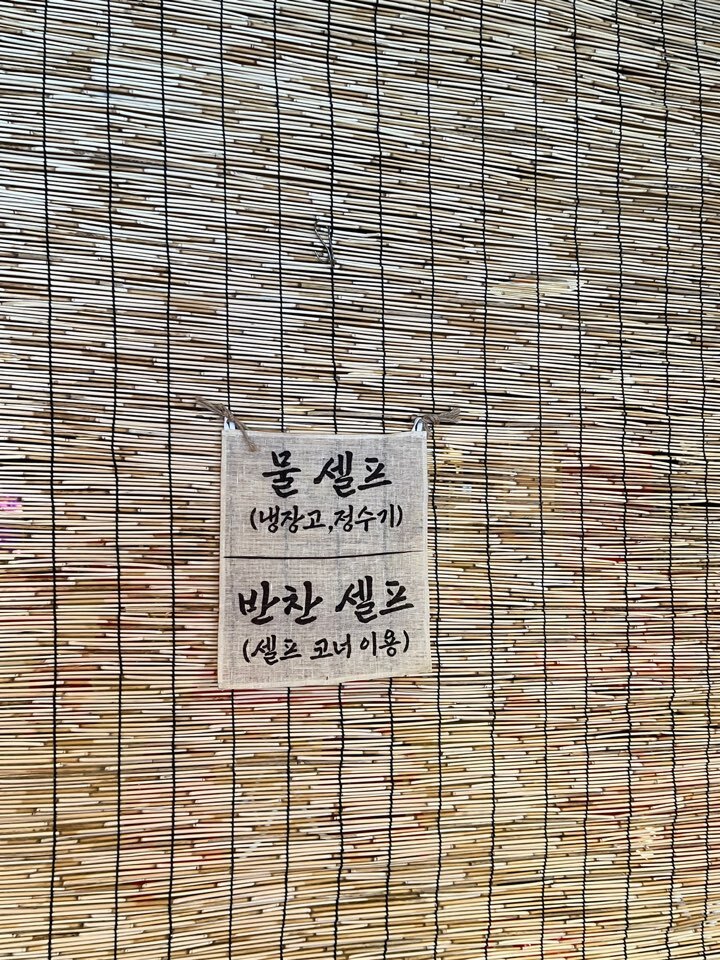 물 셀프
(냉장고,정수기)
반찬 셀프
(셀프 코너 이용)